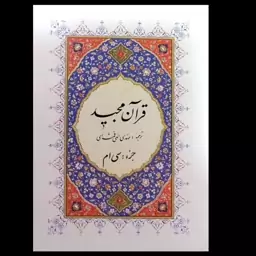 قرآن مجید
ترجمه : الهی قمشه‌ای
جزء : سی ام